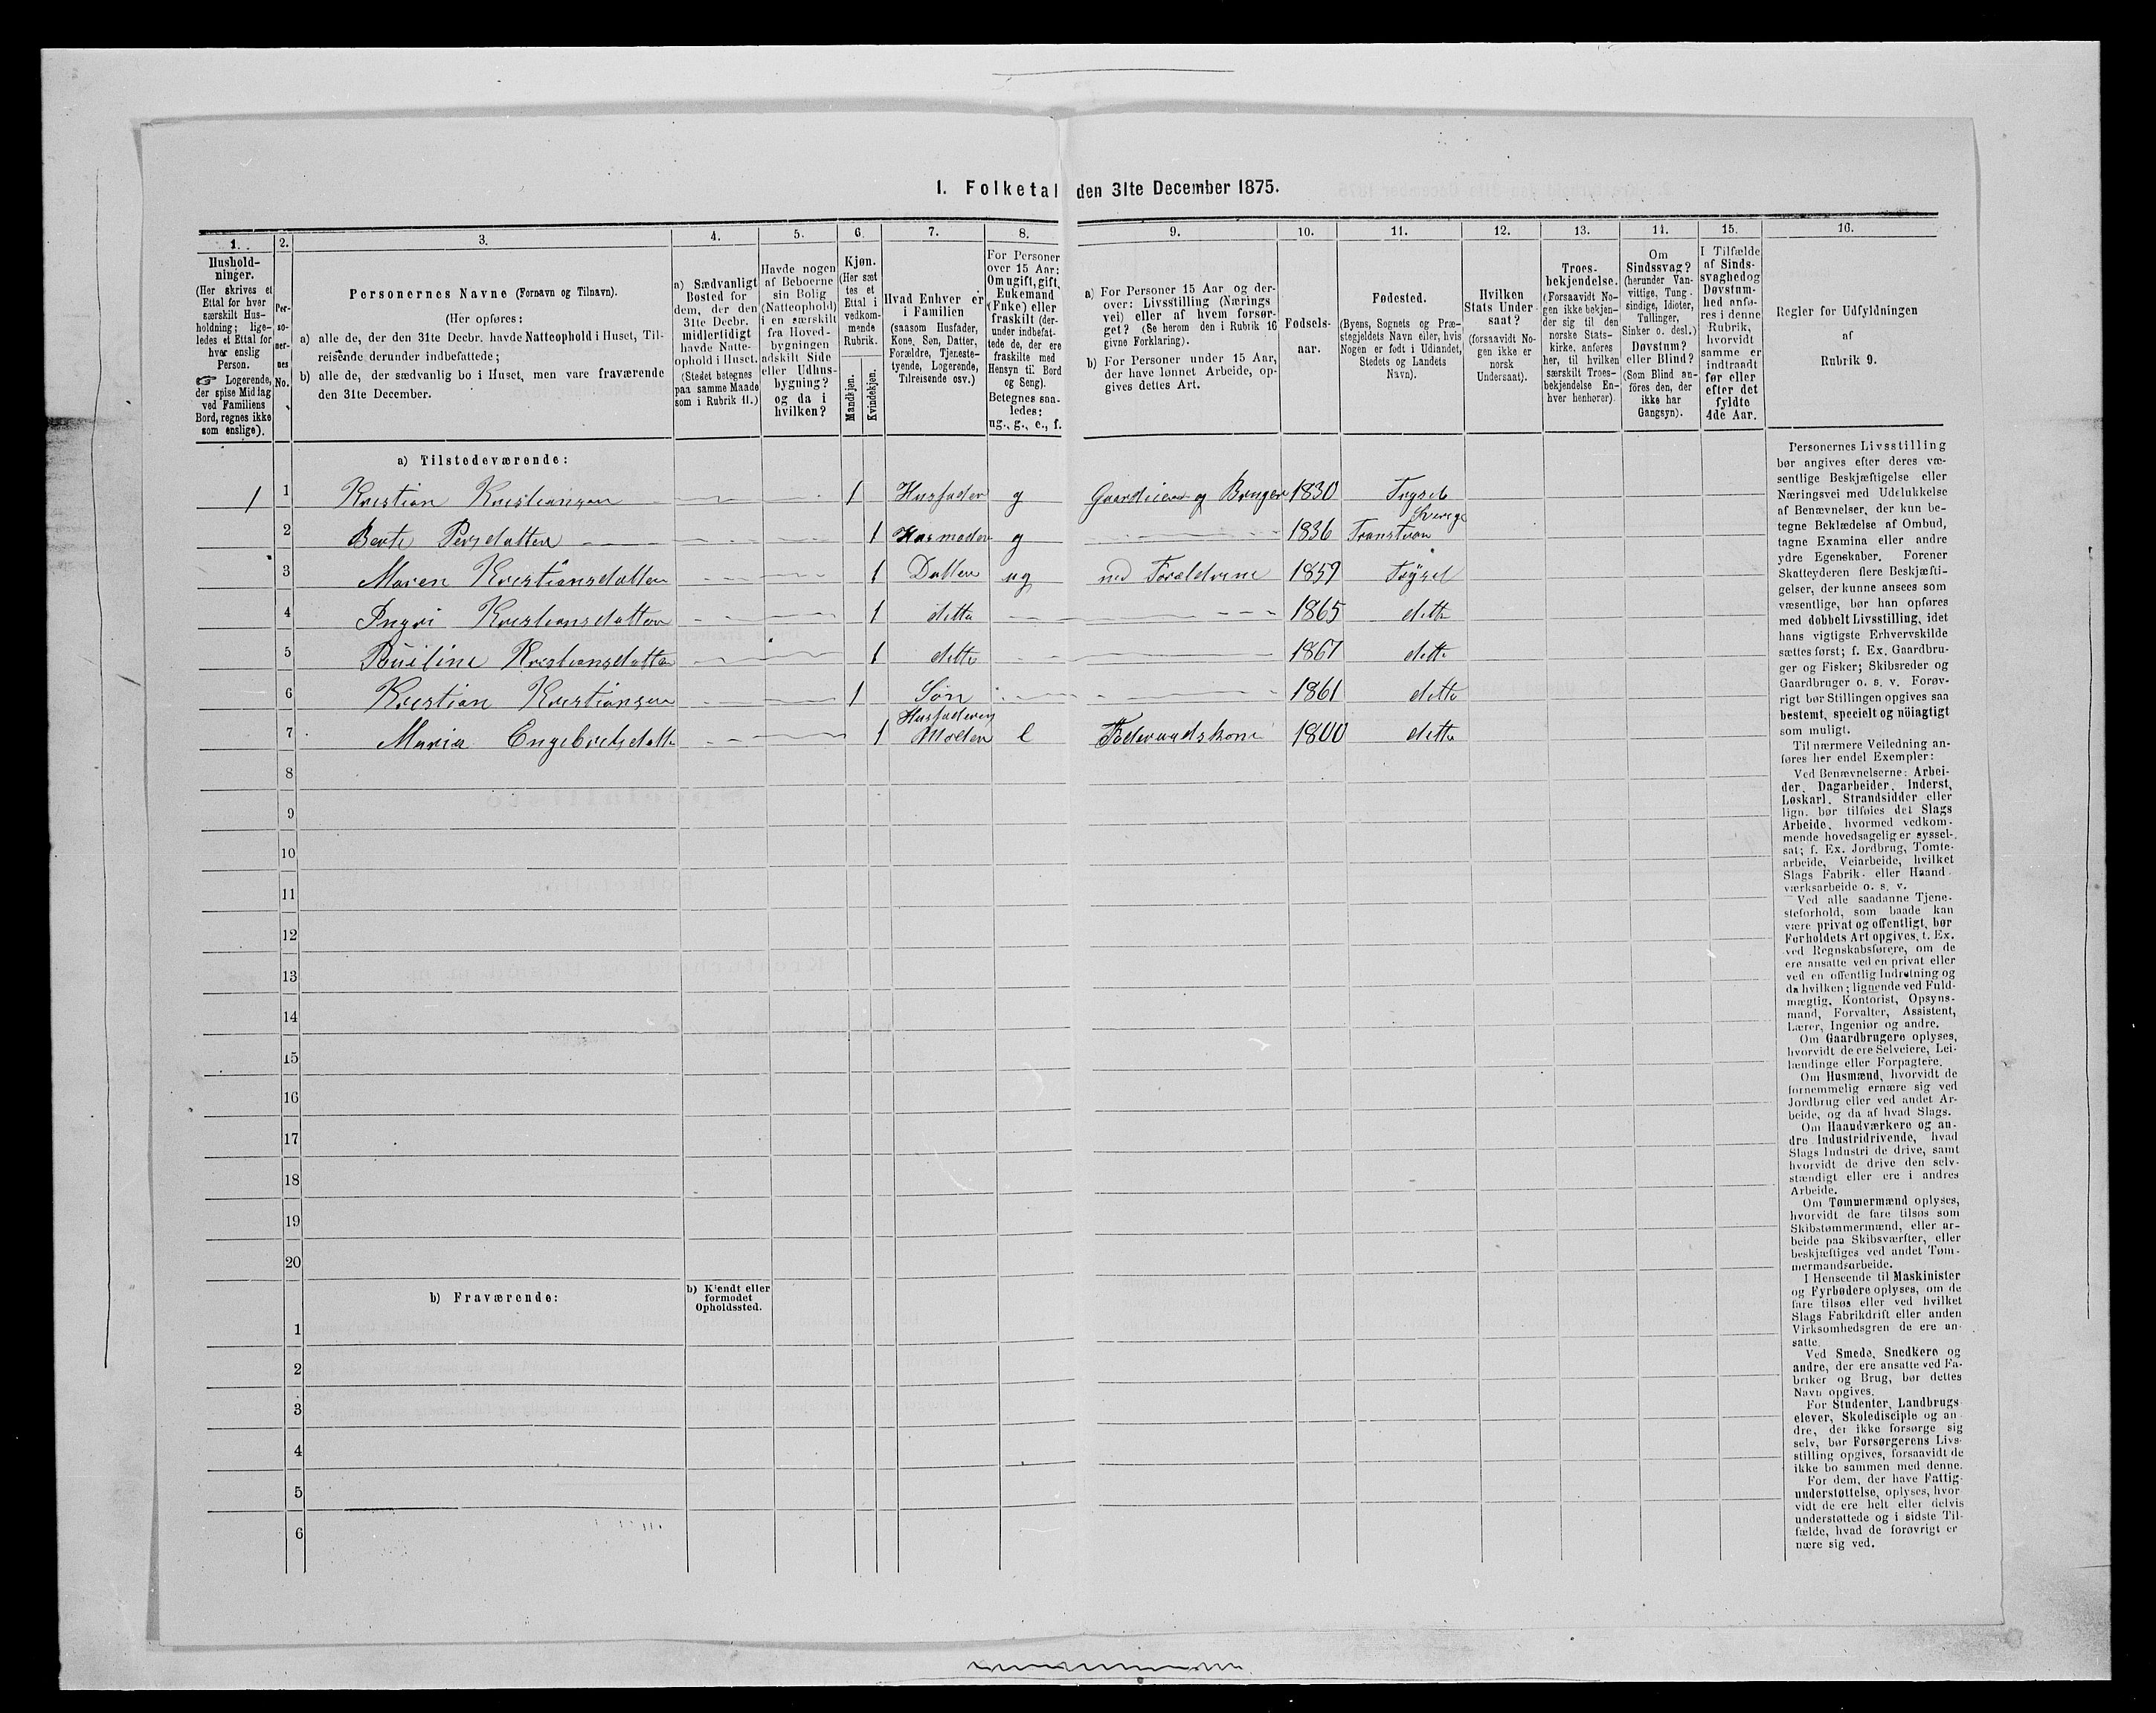 1. Folketal den 31te December 1875.
1. 2. 3. 4. 5. 6. 7. 8. 9. 10. 11. 12. 13. 14. 15. 16.
Hushold-
ninger.
(Her skrives et
Ettal for hver
særskilt Hus-
holdning; lige-
ledes et Ettal for
hver enslig
Person.
☞ Logerende,
der spise Middag
ved Familiens
Bord, regnes ikke
som enslige).
Per-
so-
ner-
nes
No.
Personernes Navne (Fornavn og Tilnavn).
(Her opføres:
a) alle de, der den 31te Decbr. havde Natteophold i Huset, Til-
reisende derunder indbefattede;
b) alle de, der sædvanlig bo i Huset, men vare fraværende
den 31te December.
a) Sædvanligt
Bosted for
dem, der den
31te Decbr.
midlertidigt
havde Natte-
ophold i Huset.
(Stedet betegnes
paa samme Maade
som i Rubrik 11.)
Havde nogen
af Beboerne
sin Bolig
(Natteophold)
i en særskilt
fra Hoved-
bygningen
adskilt Side
eller Udhus-
bygning?
og da i
hvilken?
Kjøn.
(Her sæt
tes et
Ettal i
vedkom-
mende
Rubrik.
Mandkjøn.
Kvindekjøn.
Hvad Enhver er
i Familien
(saasom Husfader,
Kone, Søn, Datter,
Forældre, Tjeneste-
tyende, Logerende,
Tilreisende osv.)
For Personer
over 15 Aar:
Om ugift, gift,
Enkemand
(Enke) eller
fraskilt (der-
under indbefat-
tede de, der ere
fraskilte med
Hensyn til Bord
og Seng).
Betegnes saa-
ledes:
ug., g., e., f.
a) For Personer 15 Aar og der-
over: Livsstilling (Nærings
vei) eller af hvem forsør-
get? (Se herom den i Rubrik 16
givne Forklaring).
b) For Personer under 15 Aar,
der have lønnet Arbeide, op-
gives dettes Art.
Fødsels-
aar.
Fødested.
(Byens, Sognets og Præ-
stegjeldets Navn eller, hvis
Nogen er født i Udlandet,
Stedets og Landets
Navn).
Hvilken
Stats Under-
saat?
(forsaavidt No-
gen ikke er
norsk
Undersaat).
Troes-
bekjendelse.
(Forsaavidt No-
gen ikke bekjen-
der sig til den
norske Stats-
kirke, anføres
her, til hvilken
særskilt Troes-
bekjendelse En-
hver henhører).
Om
Sindssvag?
(herunder Van-
vittige, Tung-
sindige, Idioter,
Tullinger,
Sinker o. desl.)
Døvstum?
eller Blind?
(Som Blind an-
föres den, der
ikke har
Gangsyn).
I Tilfælde
af Sinds-
svaghed og
Døvstum-
hed anfø-
res i denne
Rubrik,
hvorvidt
samme er
indtraadt
før eller
efter det
fyldte
4de Aar.
Regler for Udfyldningen
af
Rubrik 9.
a) Tilstedeværende:
1 1 Kristian Kristiansen 1 Husfader g Gaardeier og Bruger 1830 Trysil
2 Berte Persdatter 1 Husmoder g 1836 Transtran Sverige
3 Maren Kristiansdatter 1 Datter ug ved Forældrene 1859 Trysil
4 Ingri Kristiansdatter 1 detto 1865 detto
5 Pauline Kristiansdatter 1 detto 1867 detto
6 Kristian Kristiansen 1 Søn 1861 detto
7 Maria Engebretsdatte 1 Husfaderens Moder e Føderaadskone 1800 detto
8
9
10
11
12
13
14
15
16
17
18
19
20
b) Fraværende:
b) Kjendt eller
formodet
Opholdssted.
1
2
3
4
5
6
Personernes Livsstilling
bør angives efter deres væ-
sentlige Beskjæftigelse eller
Næringsvei med Udelukkelse
af Benævnelser, der kun be-
tegne Beklædelse af Ombud,
tagne Examina eller andre
ydre Egenskaber. Forener
Skatteyderen flere Beskjæfti-
gelser, der kunne ansees som
væsentlige, bør han opføres
med dobbelt Livsstilling, idet
hans vigtigste Erhvervskilde
sættes først; f. Ex. Gaardbru-
ger og Fisker; Skibsreder og
Gaardbruger o. s. v. Forøv-
rigt bør Stillingen opgives saa
bestemt, specielt og nöiagtigt
som muligt.
Til nærmere Veiledning an-
føres her endel Exempler:
Ved Benævnelserne: Arbei-
der, Dagarbeider, Inderst,
Løskarl, Strandsidder eller
lign. bør tilføies det Slags
Arbeide, hvormed vedkom-
mende hovedsagelig er syssel-
sat; f. Ex. Jordbrug, Tomte-
arbeide, Veiarbeide, hvilket
Slags Fabrik- eller Haand-
værksarbeide o. s. v.
Ved alle saadanne Tjene-
steforhold, som baade kan
være privat og offentligt, bør
Forholdets Art opgives, f. Ex.
ved Regnskabsførere, om de
ere ansatte ved en privat eller
ved en offentlig Indretning og
da hvilken; lignende ved Fuld-
mægtig, Kontorist, Opsyns-
mand, Forvalter, Assistent,
Lærer, Ingeniør og andre.
Om Gaardbrugere oplyses,
hvorvidt de ere Selveiere, Lei-
lændinge eller Forpagtere.
Om Husmænd, hvorvidt de
fornemmelig ernære sig ved
Jordbrug eller ved andet Ar-
beide, og da af hvad Slags.
Om Haandværkere og an-
dre Industridrivende, hvad
Slags Industri de drive, samt
hvorvidt de drive den selv-
stændigt eller ere i andres
Arbeide.
Om Tømmermænd oplyses,
hvorvidt de fare tilsøs som
Skibstømmermænd, eller ar-
beide paa Skibsværfter, eller
beskjæftiges ved andet Tøm-
mermandsarbeide.
I Henseende til Maskinister
og Fyrbødere oplyses, om de
fare tilsøs eller ved hvilket
Slags Fabrikdrift eller anden
Virksomhedsgren de ere an-
satte.
Ved Smede, Snedkere og
andre, der ere ansatte ved Fa-
briker og Brug, bør dettes
Navn opgives.
For Studenter, Landbrugs-
elever, Skoledisciple og an-
dre, der ikke forsørge sig
selv, bør Forsørgerens Livs-
stilling opgives, forsaavidt de
ikke bo sammen med denne.
For dem, der have Fattig-
understøttelse, oplyses, hvor-
vidt de ere helt eller delvis
understøttede og i sidste Til-
fælde, hvad de forøvrigt er
nære sig ved.